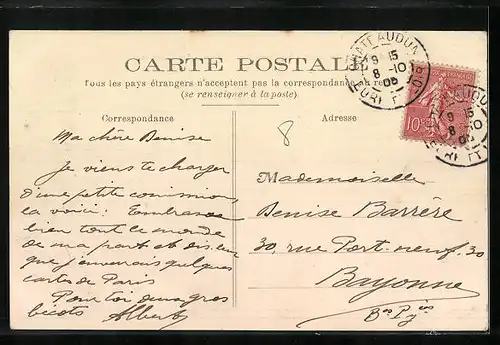 CARTE POSTALE
Tous les pays étrangers n'acceptent pas la correspondance au
(se renseigner à la poste)
Correspondance
Adresse
8
Ma chère Denise
je viens te charger
d'une petite commission
la voici : Embrasse
bien tout le monde
de ma part et dis leur
que j'enverrai quelques
cartes de Paris
Pour toi deux gros
bécots Albert
Mademoiselle
Denise Barrère
30, rue Port-neuf. 30
Bayonne
Bses Pyées
CHATEAUDUN
9 15
8 -10
10c
9 15